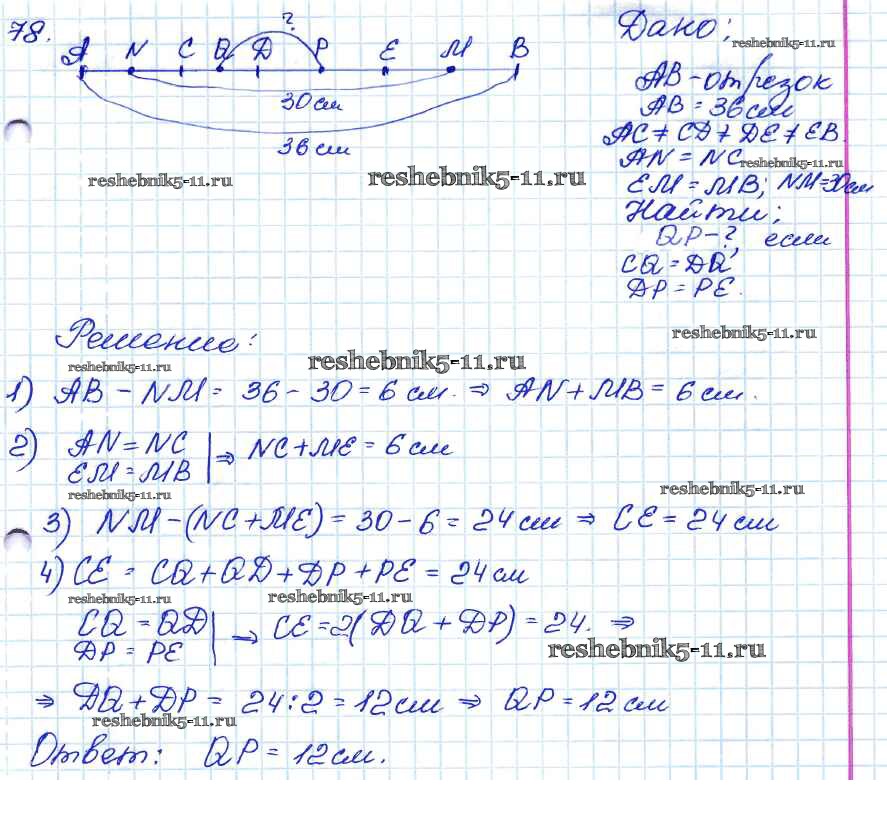 78.
?
A N C Q D P E M B
30 см
36 см
reshebnik5-11.ru
reshebnik5-11.ru
Дано:
reshebnik5-11.ru
AB - отрезок
AB = 36 см
AC ≠ CD ≠ DE ≠ EB.
AN = NC
reshebnik5-11.ru
EM = MB; NM = 30 см
Найти:
QP - ?, если
CQ = DQ
DP = PE.
reshebnik5-11.ru
Решение:
reshebnik5-11.ru
reshebnik5-11.ru
1) AB - NM = 36 - 30 = 6 см. ⇒ AN + MB = 6 см.
2) AN = NC
EM = MB | ⇒ NC + ME = 6 см
reshebnik5-11.ru
reshebnik5-11.ru
3) NM - (NC + ME) = 30 - 6 = 24 см ⇒ CE = 24 см
4) CE = CQ + QD + DP + PE = 24 см
reshebnik5-11.ru
reshebnik5-11.ru
CQ = QD
DP = PE | ⇒ CE = 2(DQ + DP) = 24. ⇒
reshebnik5-11.ru
⇒ DQ + DP = 24 : 2 = 12 см ⇒ QP = 12 см
reshebnik5-11.ru
Ответ: QP = 12 см.